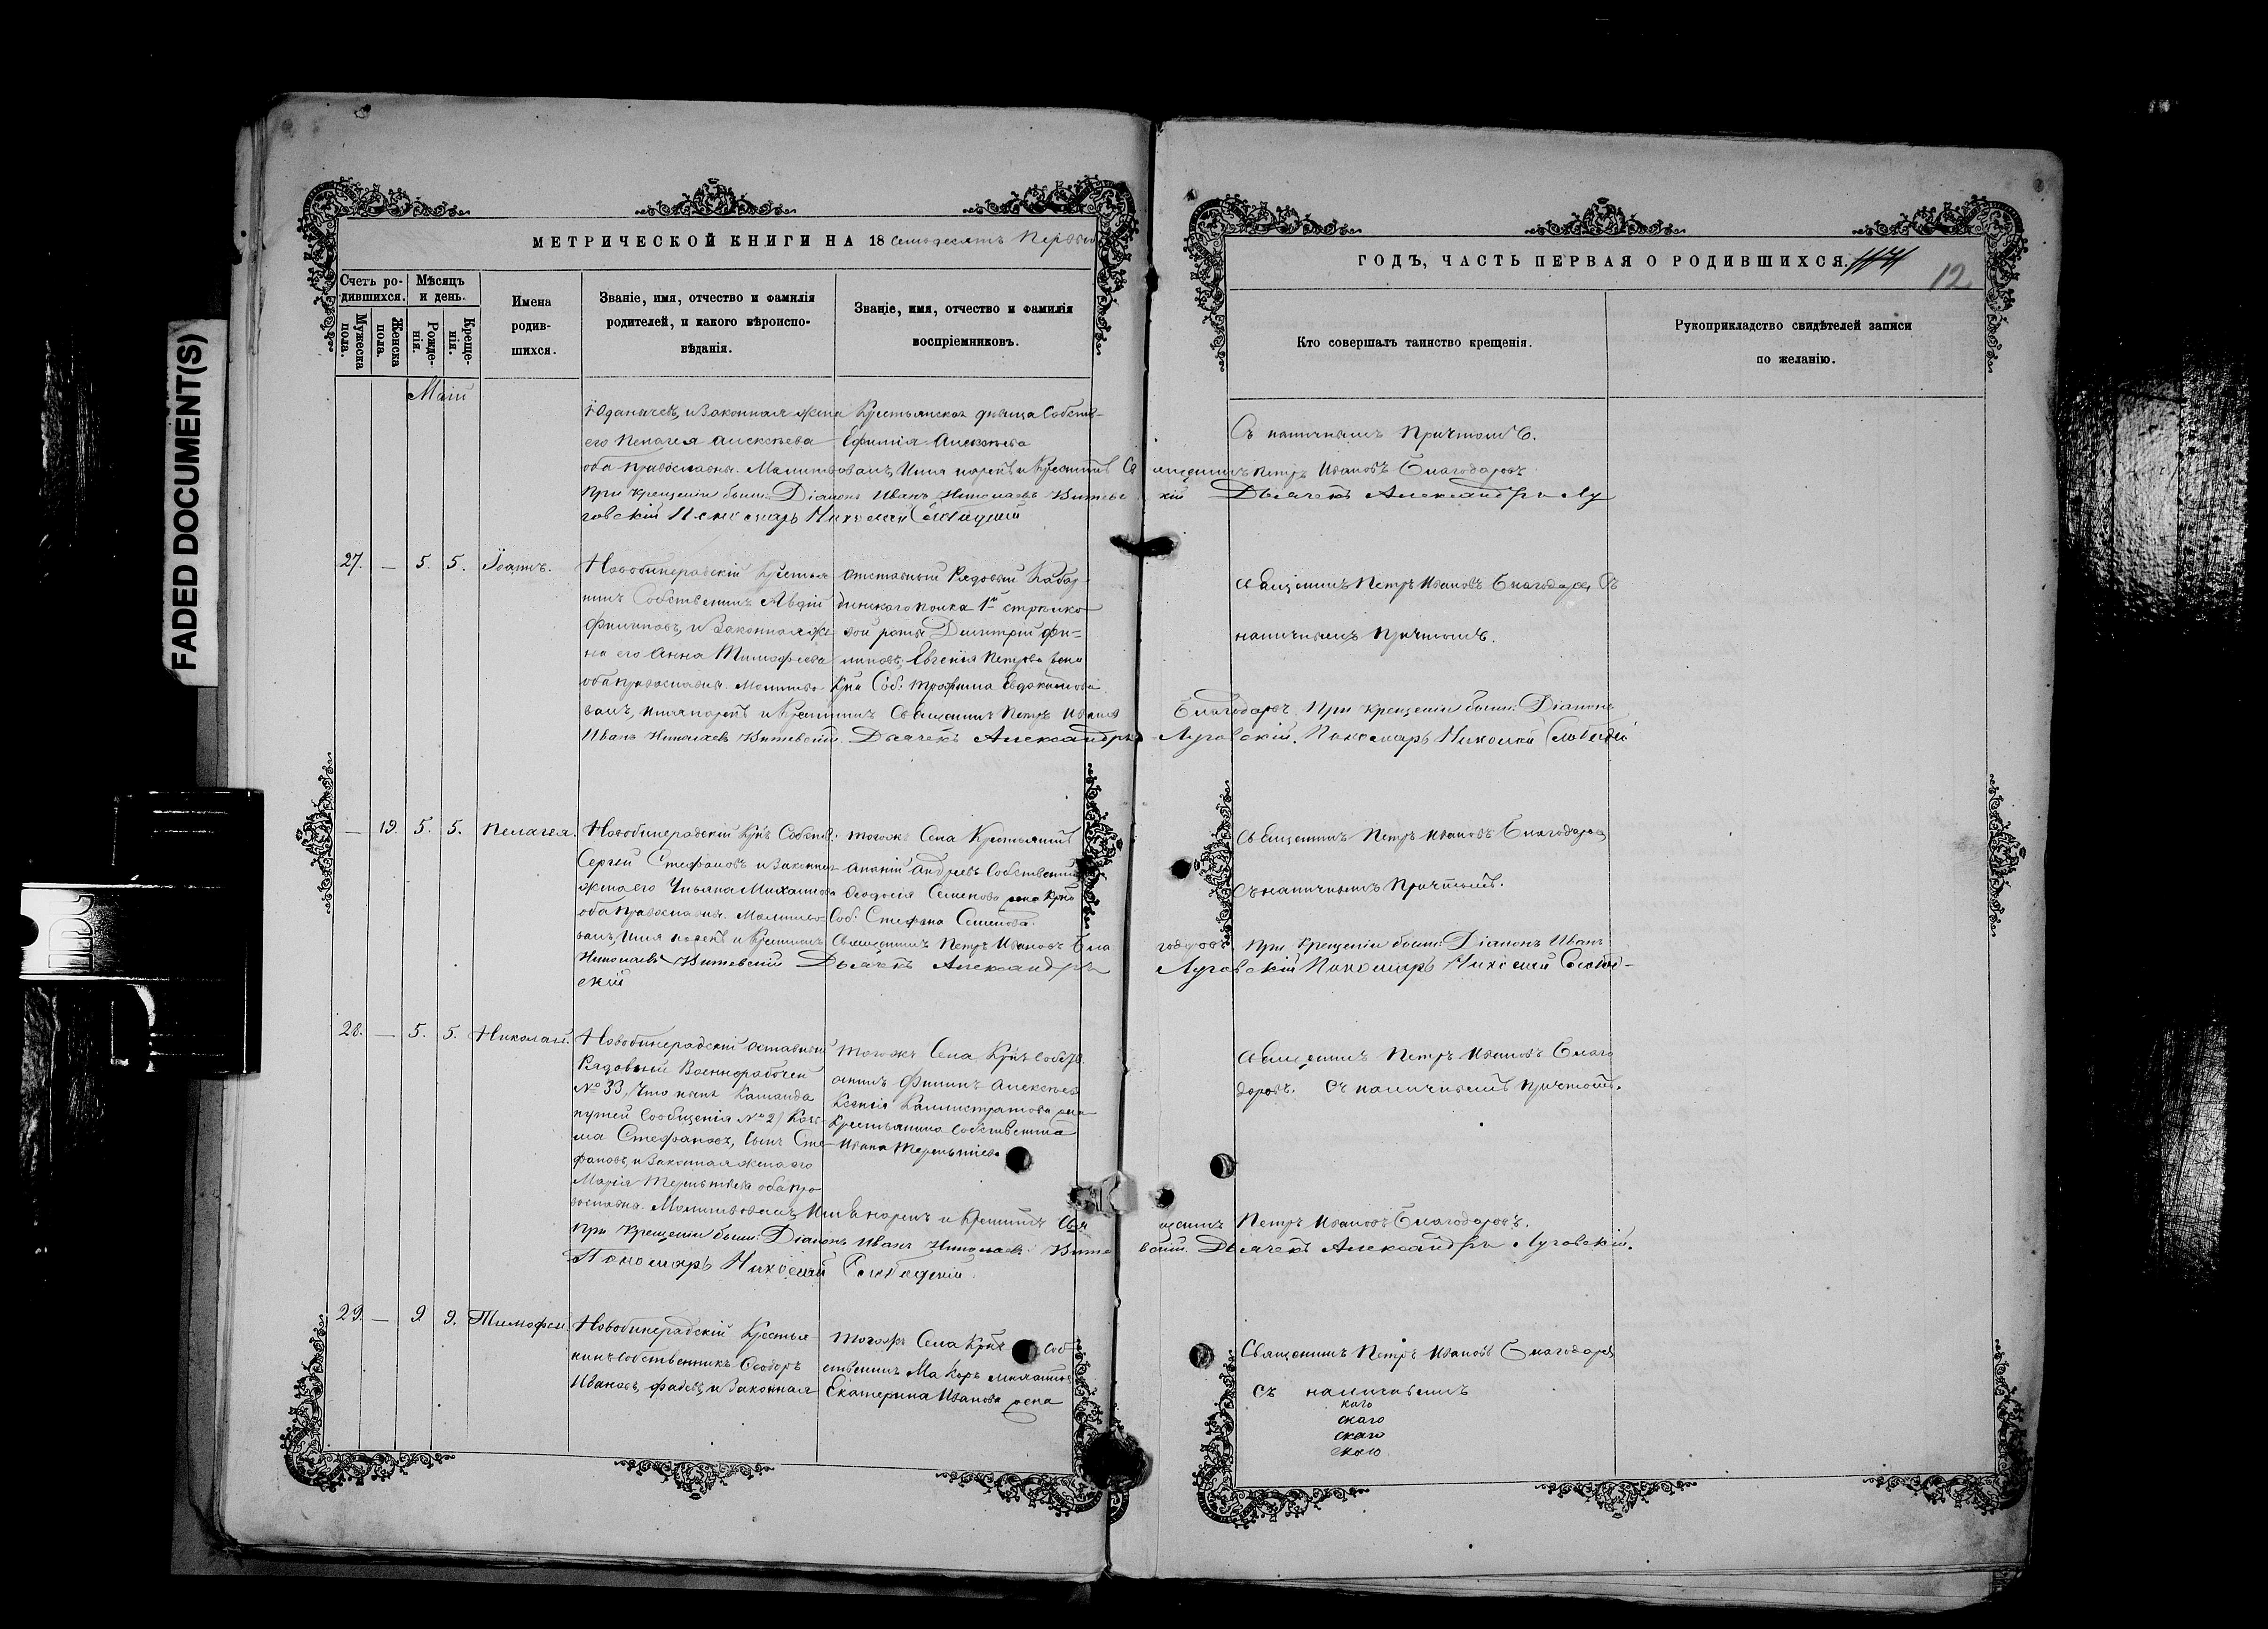 FADED DOCUMENT(S)
МЕТРИЧЕСКОЙ КНИГИ НА 18 семьдесятъ первый
Счетъ родившихся.
Мужеска пола.
Женска пола.
Мѣсяцъ и день.
Рожденія.
Крещенія.
Имена родившихся.
Званіе, имя, отчество и фамилія родителей, и какого вѣроисповѣданія.
Званіе, имя, отчество и фамилія воспріемниковъ.
ГОДЪ, ЧАСТЬ ПЕРВАЯ О РОДИВШИХСЯ.
12
Кто совершалъ таинство крещенія.
Рукоприкладство свидѣтелей записи по желанію.
Маій
и Законная жена
его Пелагея Алексѣева
Крестьянская дѣвица Собств-
Ефимія Алексѣева
Съ наличнымъ Причтомъ.
оба Православны. Молитвовалъ, Имя нарекъ и Крестилъ Священникъ Петръ Ивановъ Благодаровъ
При крещеніи были: Діаконъ Иванъ Николаевъ Дьячекъ Александръ Лу
говскій Пономарь Николай
27. — 5. 5. Іоаннъ.
Крестья-
нинъ Собственникъ Авдій
Филиповъ, и Законная же-
на его Анна Тимофеева
оба Православны. Молитво-
отставный Рядовый Кабар-
динскаго полка 1й стрѣлко-
вой роты Дмитрій Фи-
липовъ, Евгенія Петрова жена
Крн. Соб. Трофима Евдокимова
Священникъ Петръ Ивановъ Благодаровъ Съ
наличнымъ Причтомъ.
валъ, имя нарекъ и Крестилъ Священникъ Петръ Ивановъ Благодаровъ. При крещеніи были: Діаконъ
Иванъ Николаевъ Дьячекъ Александръ Луговскій. Пономарь Николай
— 19. 5. 5. Пелагея.
Собств.
Сергей Стефановъ и Законная
жена его Ульяна Михайлова
оба Православны. Молитво-
Тогожъ Села Крестьянинъ
Ананій Андреевъ Собственникъ
Феодосія Семенова жена Крн
Соб. Стефана Семенова.
Священникъ Петръ Ивановъ Благодаровъ
Съ наличнымъ Причтомъ.
валъ, Имя нарекъ и Крестилъ Священникъ Петръ Ивановъ Благодаровъ. При крещеніи были: Діаконъ Иванъ
Николаевъ Дьячекъ Александръ Луговскій Пономарь Николай
скій
28. — 5. 5. Николай.
Рядовый Военнорабочей
№ 33, Что нынѣ Команда
путей Сообщенія № 2) Козь-
ма Стефановъ, сынъ Сте-
фановъ, и Законная жена его
Марія Терентіева оба пра-
Тогожъ Села Крн Собств
енникъ Филипъ Алексѣевъ
Ксенія Каллистратова жена
Крестьянина Собственника
Ивана Терентіева
Священникъ Петръ Ивановъ Благо
даровъ. Съ наличнымъ причтомъ.
вославны. Молитвовалъ, Имя нарекъ и Крестилъ Священникъ Петръ Ивановъ Благодаровъ.
При Крещеніи были: Діаконъ Иванъ Николаевъ Дьячекъ Александръ Луговскій.
Пономарь Николай
29. — 9. 9. Тимофей.
Крестья-
нинъ Собственникъ Феодоръ
Ивановъ, и Законная
Тогожъ Села Крн Соб-
ственникъ Макаръ Михайловъ
Екатерина Иванова жена
Священникъ Петръ Ивановъ Благодаровъ
Съ наличнымъ
каго
скаго
скаго
скаго